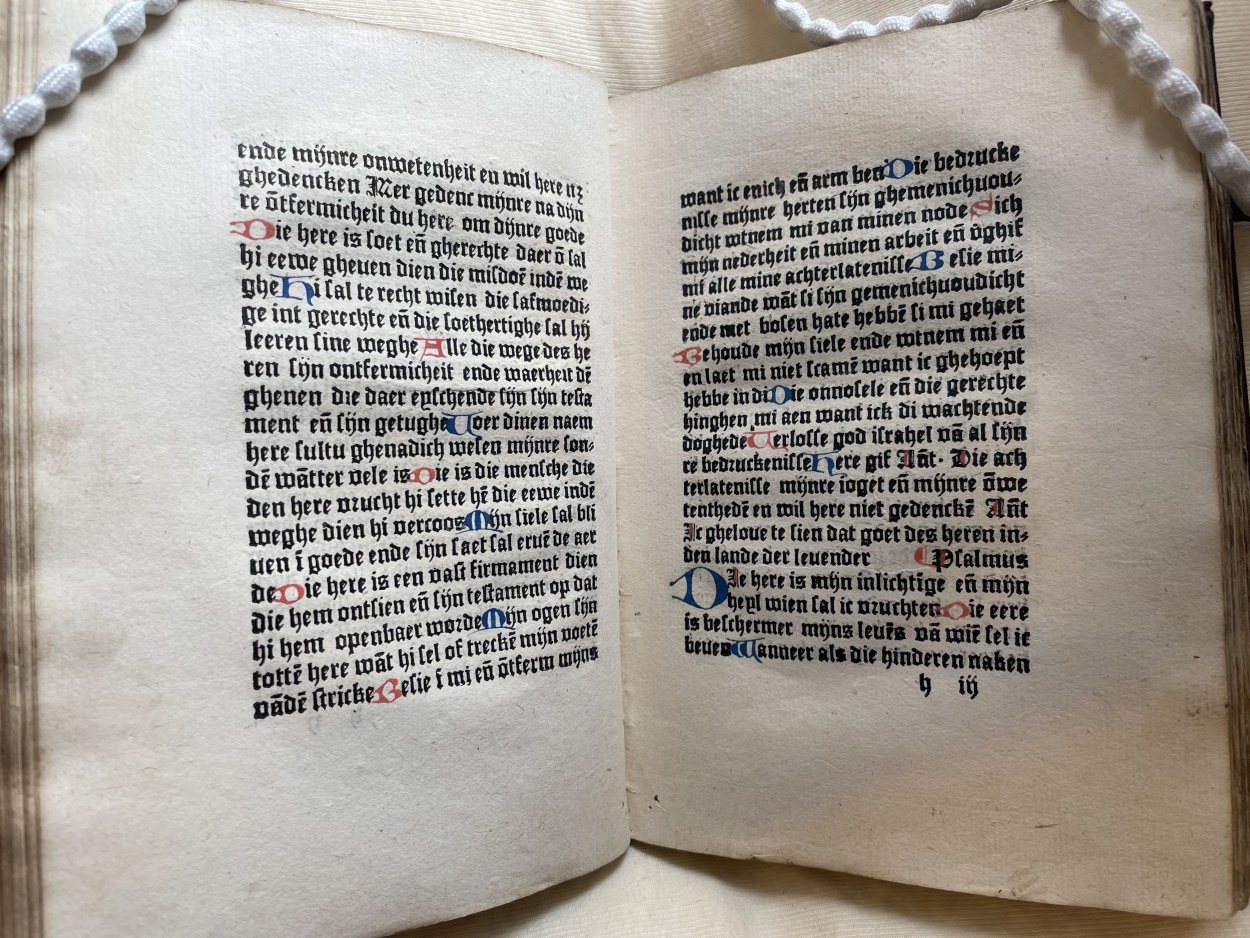 ende mijnre onwetenheit en wil here nʒ
ghedencken Mer gedenc mijnre na dijn
re ōtfermicheit du here om dijnre goede
Die here is soet eñ gherechte daer ō sal
hi eewe gheuen dien die misdoē indē we
ghe Hi sal te recht wisen die safmoedi⸗
ge int gerechte eñ die soethertighe sal hij
leeren sine weghe Alle die wege des he
ren sijn ontfermicheit ende waerheit dē
ghenen die daer eyschende sijn sijn testa
ment eñ sijn getughe Uoer dinen naem
here sultu ghenadich wesen mijnre son⸗
dē wātter vele is Die is die mensche die
den here vrucht hi sette hē die eewe indē
weghe dien hi vercoos Mijn siele sal bli
uen ī goede ende sijn saet sal eruē de aer
de Die here is een vast firmament dien
die hem ontsien eñ sijn testament op dat
hi hem openbaer worde Mijn ogen sijn
tottē here wāt hi sel of treckē mijn voetē
vādē stricke Besie ī mi eñ ōtferm mijns
want ic enich eñ arm ben Die bedrucke
nisse mijnre herten sijn ghemenichuou⸗
dicht wtnem mi van minen node Sich
mijn nederheit eñ minen arbeit eñ v̄ghif
mi alle mine achterlatenisse Besie mi⸗
ne viande wāt si sijn gemenichuoudicht
ende met bosen hate hebbē si mi gehaet
Behoude mijn siele ende wtnem mi eñ
en laet mi niet scamē want ic ghehoept
hebbe in di Die onnosele eñ die gerechte
hinghen mi aen want ick di wachtende
doghede Uerlosse god israhel vā al sijn
re bedruckenisse Here gif Añt. Die ach
terlatenisse mijnre ioget eñ mijnre ōwe
tenthedē en wil here niet gedenckē Añt
Ic gheloue te sien dat goet des heren in⸗
den lande der leuender Psalmus
DIe here is mijn inlichtige eñ mijn
heyl wien sal ic vruchten Die eere
is beschermer mijns leuēs vā wiē sel ic
beuen Wanneer als die hinderen naken
h iij